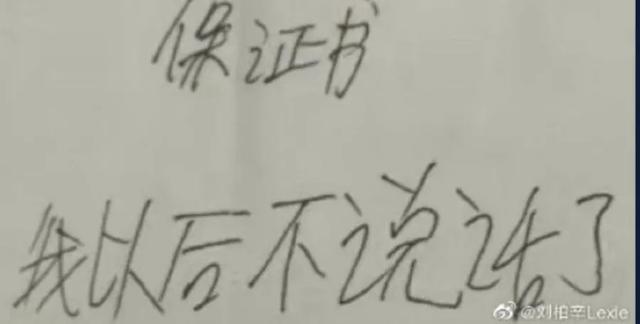 保证书
我以后不说话了
@刘柏辛Lexie